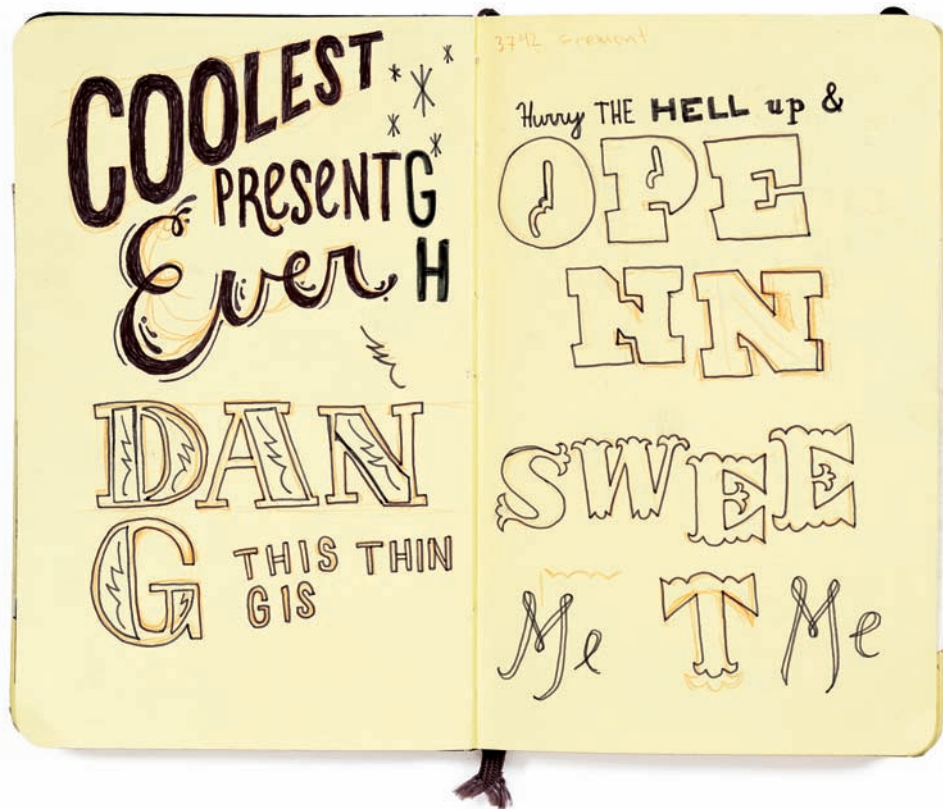 COOLEST
PRESENT G
Ever H
DAN
G THIS THIN
G IS
Hurry THE HELL up &
OPE
NN
SWEE
Me T Me